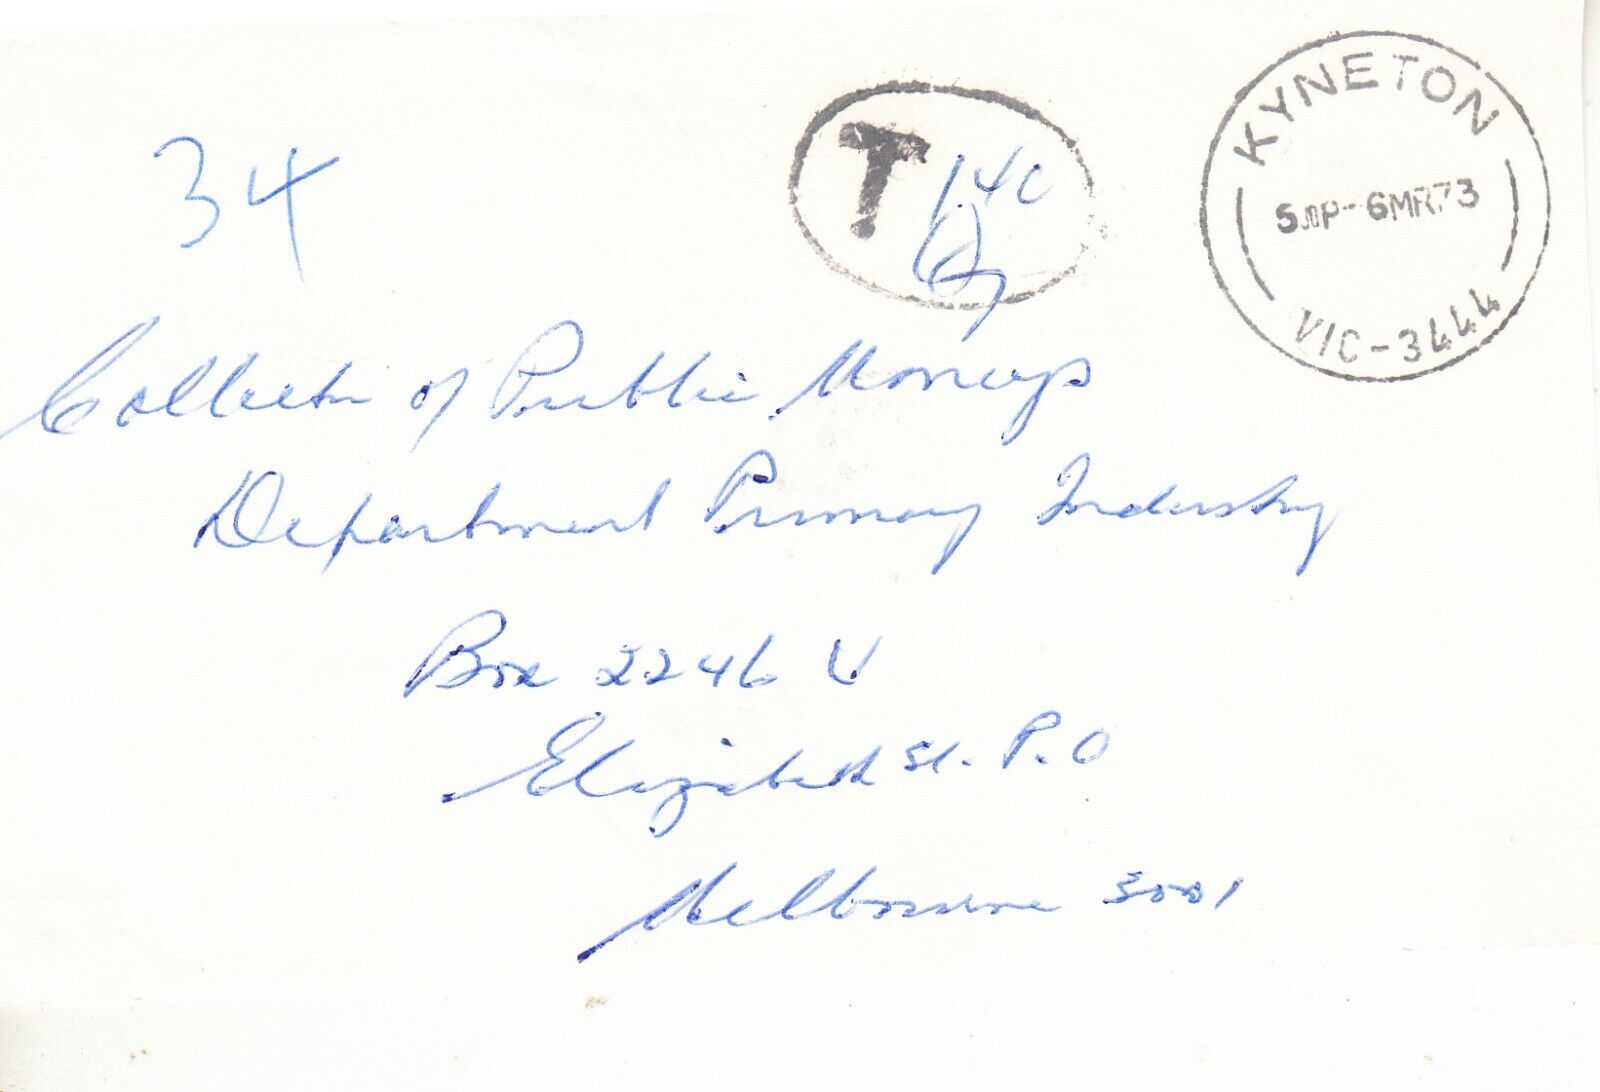 KYNETON
5 PM-6MR73
VIC-3444
T 14c
34
Collector of Public Moneys
Department Primary Industry
Box 2246 V
Elizabeth St. P.O
Melbourne 3001